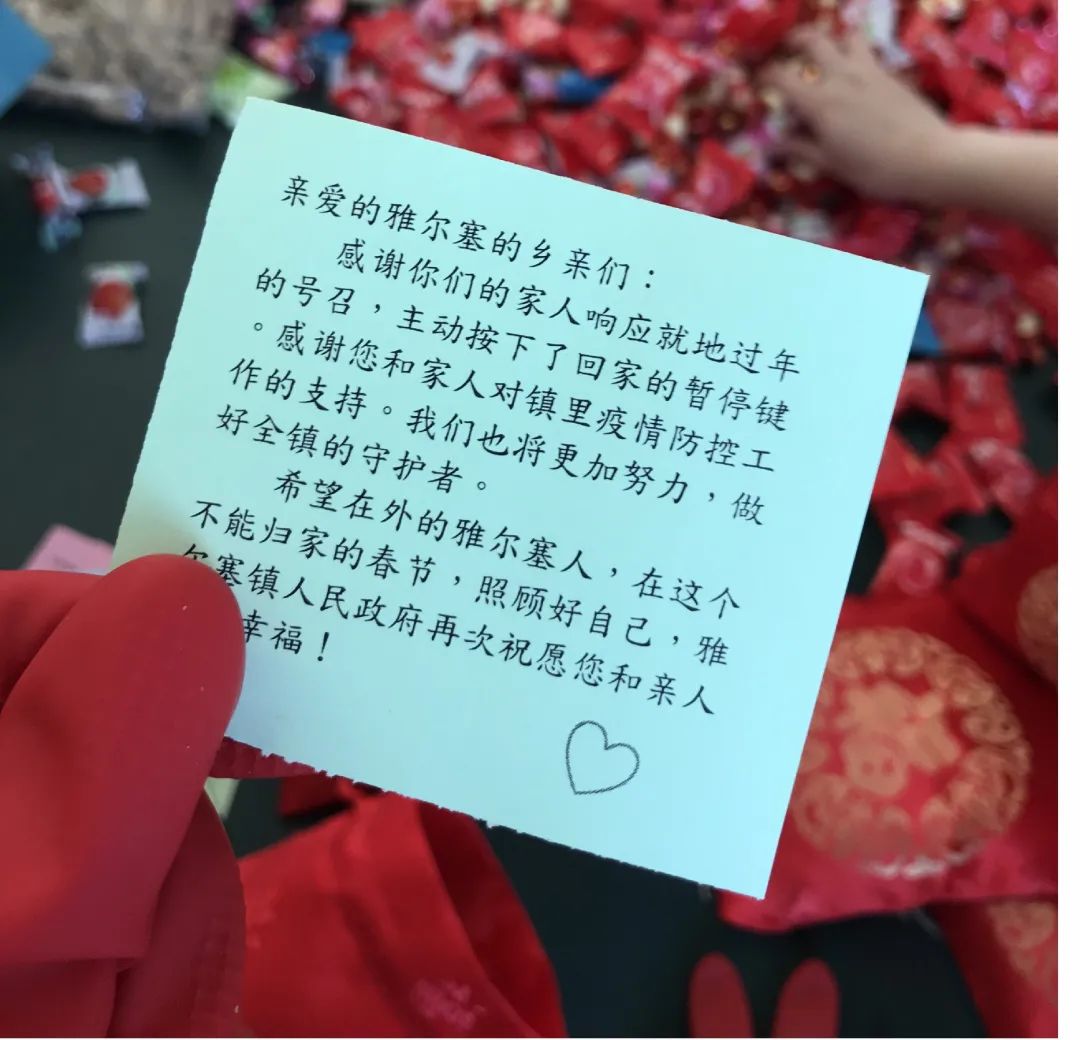 亲爱的雅尔塞的乡亲们：
感谢你们的家人响应就地过年
的号召，主动按下了回家的暂停键
。感谢您和家人对镇里疫情防控工
作的支持。我们也将更加努力，做
好全镇的守护者。
希望在外的雅尔塞人，在这个
不能归家的春节，照顾好自己，雅
尔塞镇人民政府再次祝愿您和亲人
幸福！